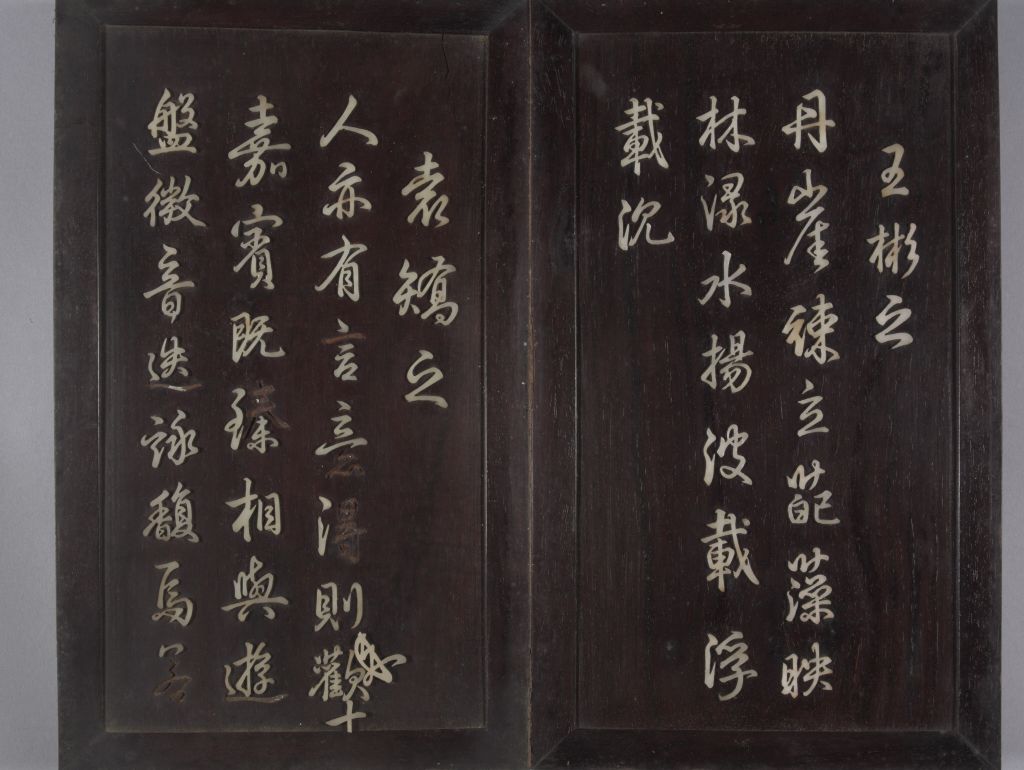 王彬之
丹崖竦立葩藻映
林渌水揚波載浮
載沉
袁矯之
人亦有言意得則歡
嘉賓既臻相與遊
盤微音迭詠馥焉若